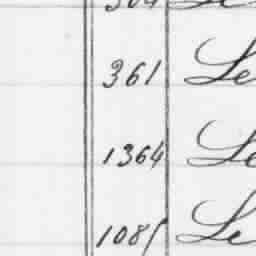 361 Le
1364 Le
1085 Le